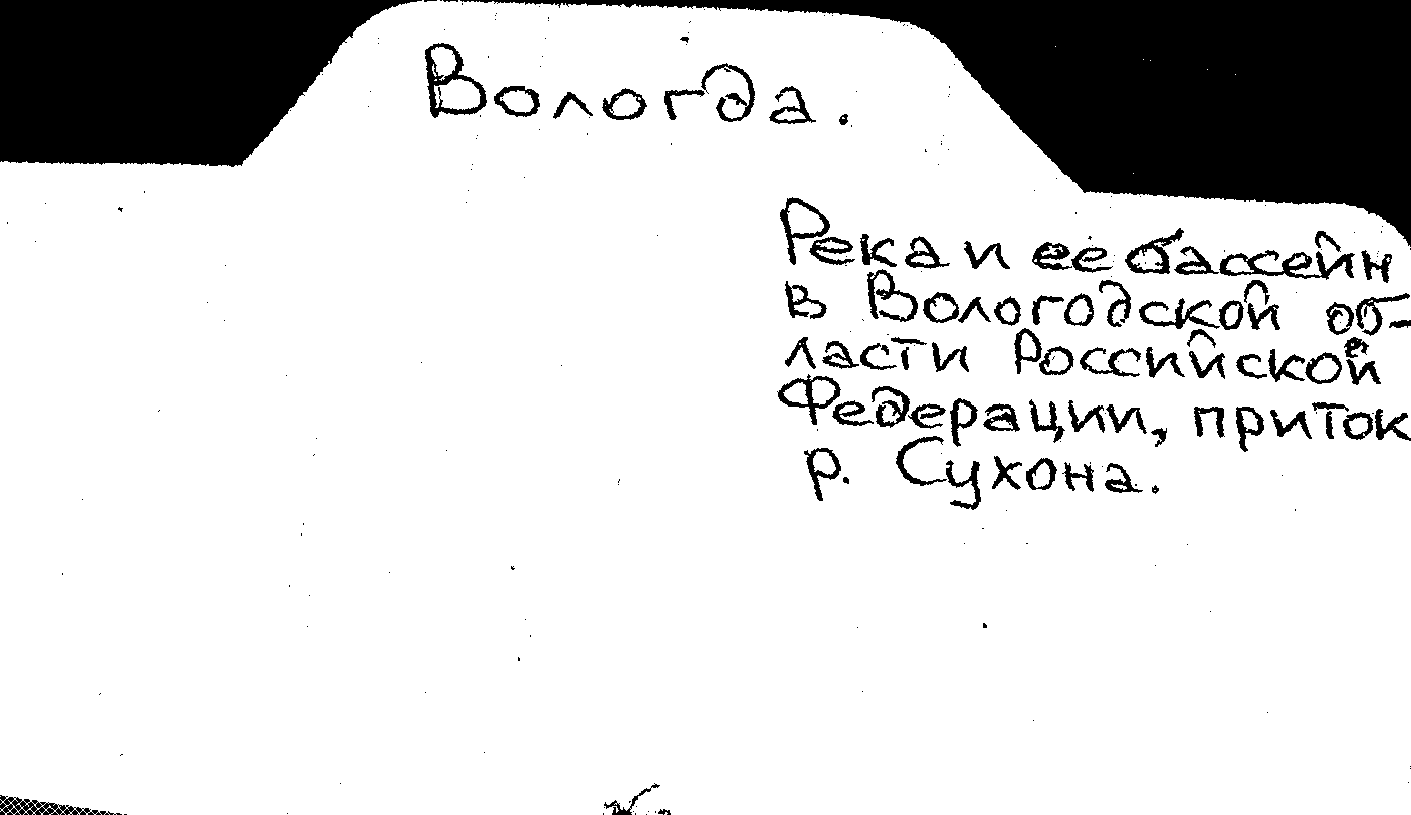 Вологда.
Река и ее бассейн
в Вологодской об-
ласти Российской
Федерации, приток
р. Сухона.